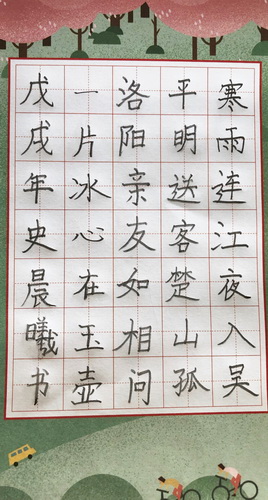 寒雨连江夜入吴
平明送客楚山孤
洛阳亲友如相问
一片冰心在玉壶
戊戌年史晨曦书